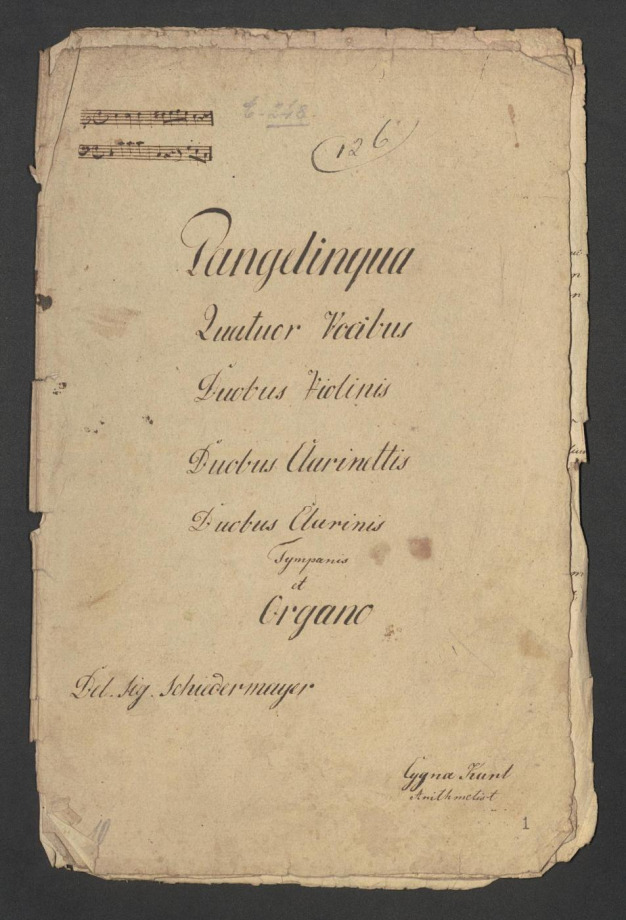 126
Pangelinqua
Quatuor Vocibus
Duobus Violinis
Duobus Clarinettis
Duobus Clarinis
Tympanis
et
Organo
Del. Sig. Schiedermayer
Arithmetist
1